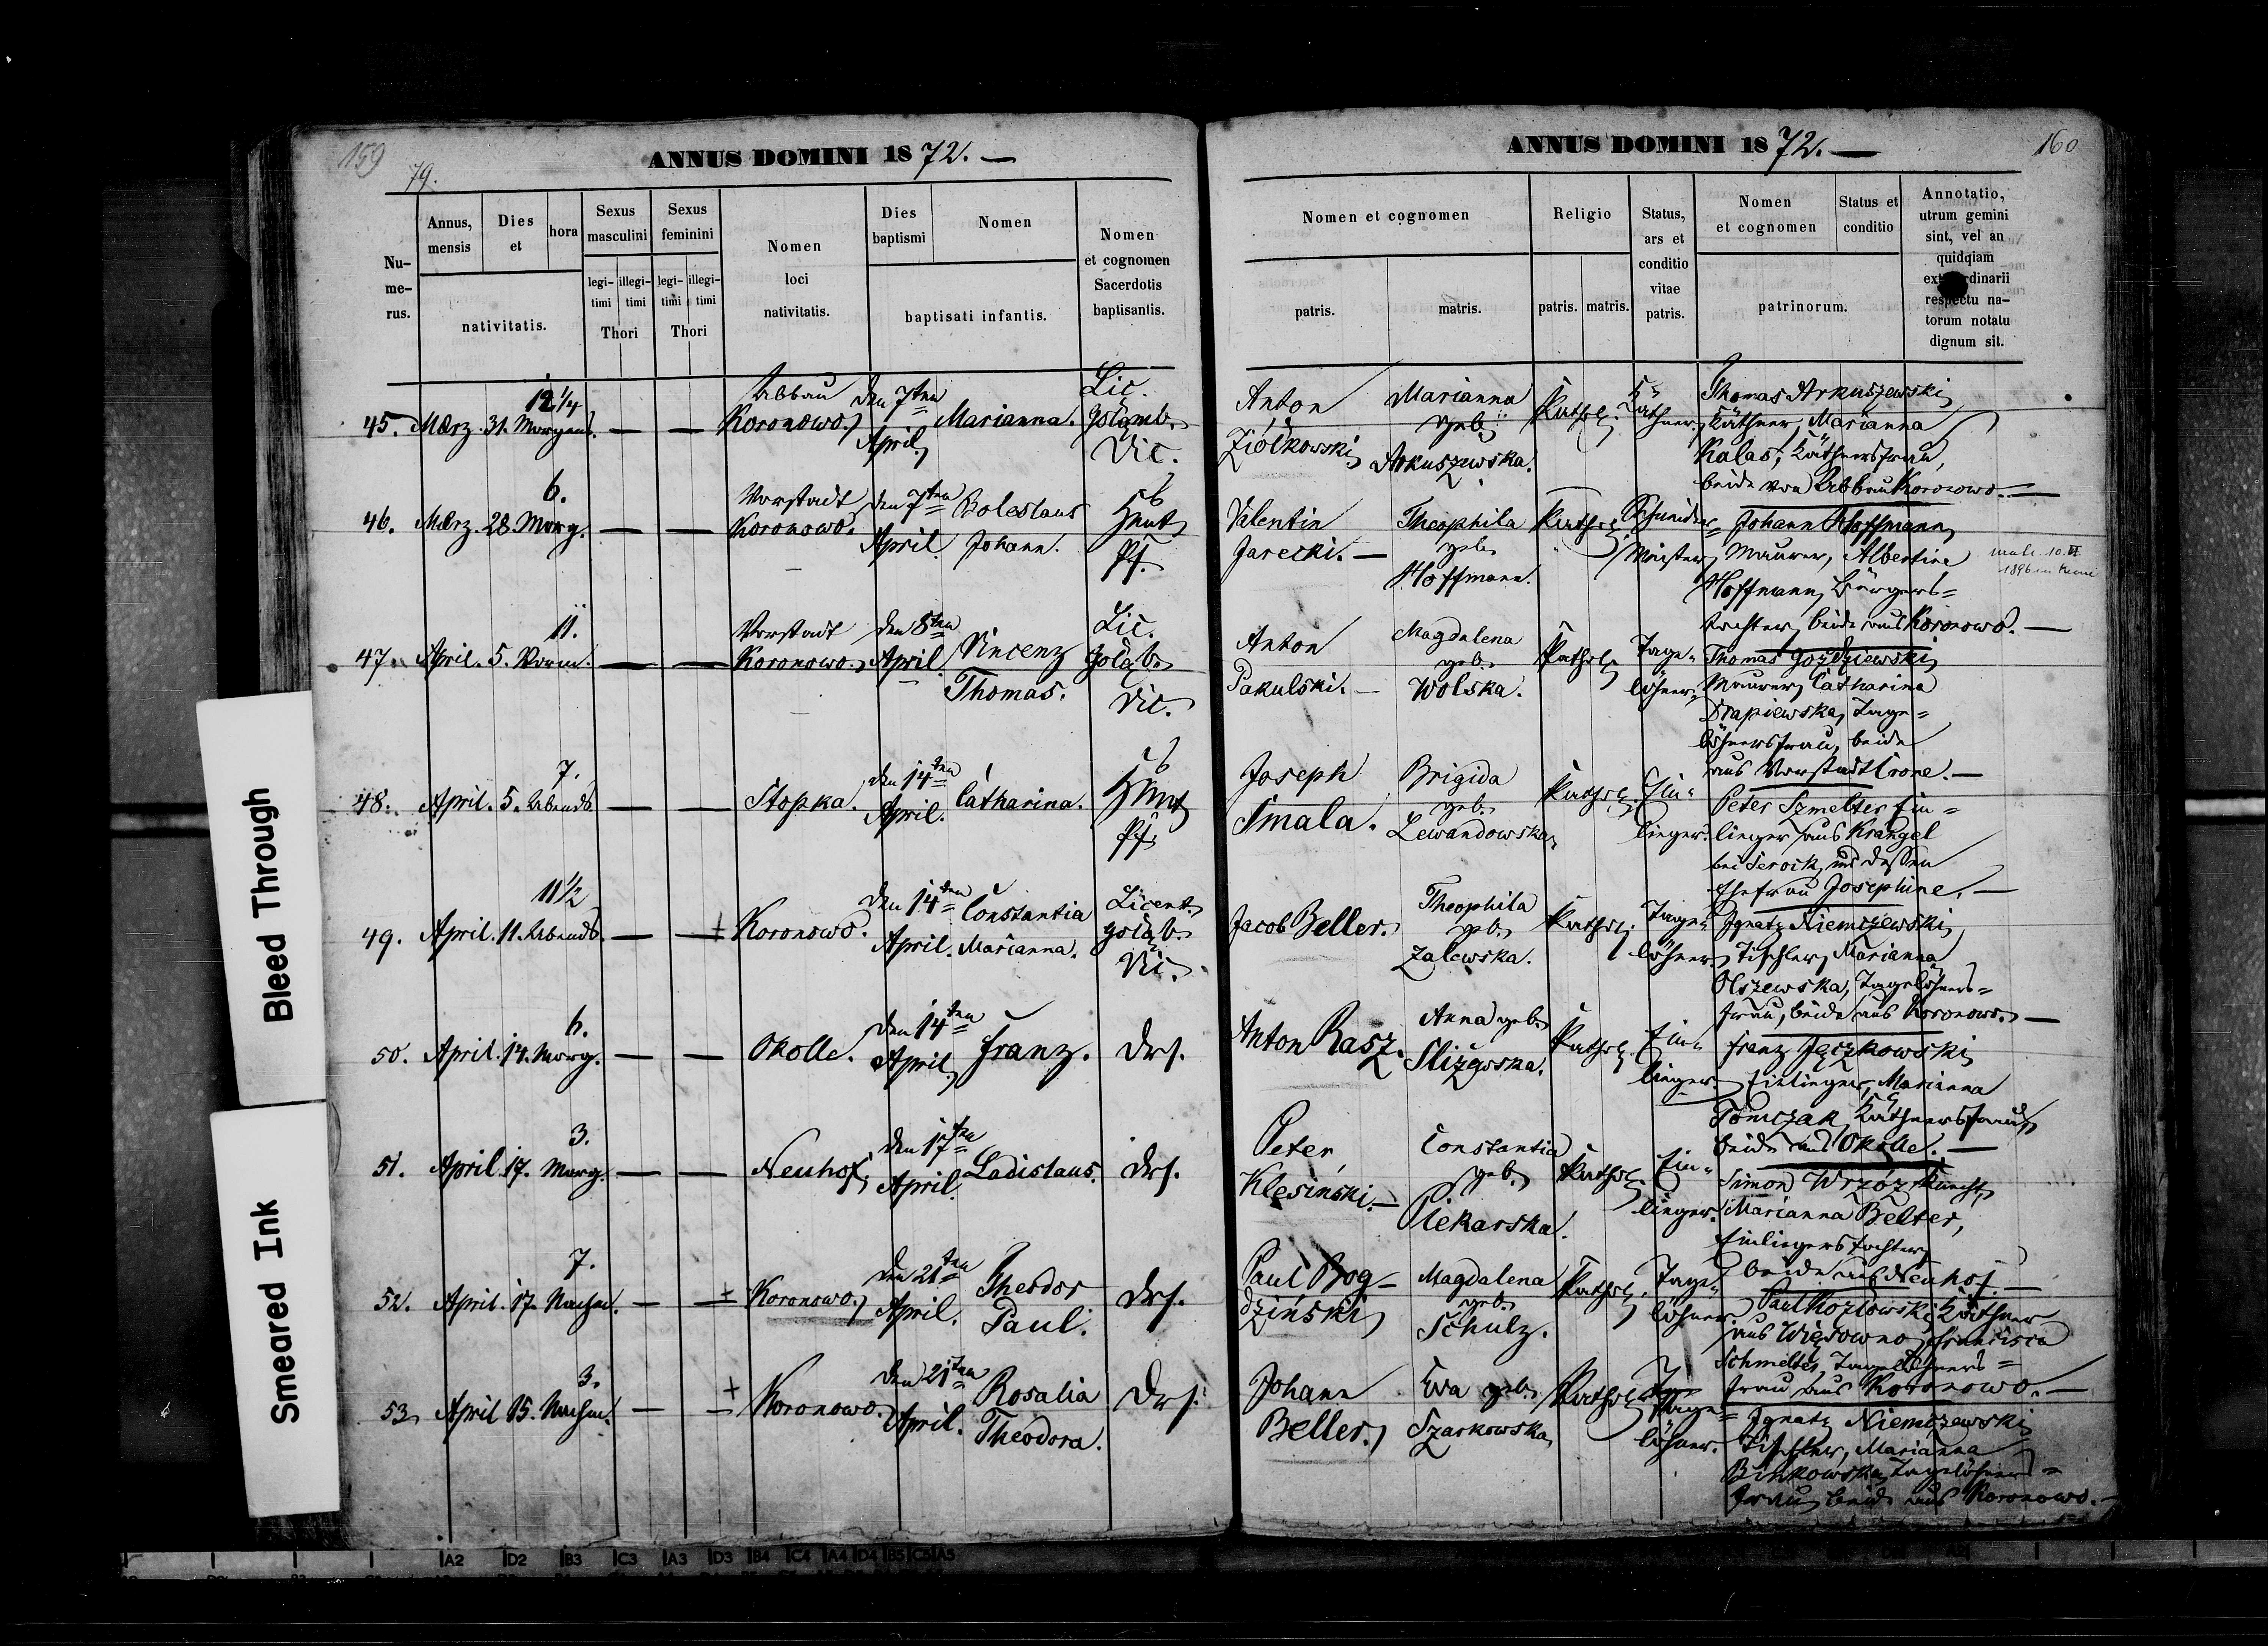 159
79.
ANNUS DOMINI 1872. —
Numerus.
Annus, mensis
Dies et
hora
nativitatis.
Sexus masculini
legitimi
illegitimi
Thori
Sexus feminini
legitimi
illegitimi
Thori
Nomen
loci
nativitatis.
Dies baptismi
Nomen
baptisati infantis.
Nomen
et cognomen
Sacerdotis
baptisantis.
45. März. 31. 12 1/4 Morgens. — — Abbau Koronowo. den 7ten April Marianna. Lic. Vic.
46. März. 28. 6. Morg. — — Vorstadt Koronowo. den 7ten April Boleslaus Johann. Pf.
47. April. 5. 11. Vorm. — — Vorstadt Koronowo. den 8ten April Vincenz Thomas. Lic. Gołąb. Vic.
48. April. 5. 7. Abends. — — Stopka. den 14ten April. Catharina. Pf.
49. April. 11. 11 1/2 Abends. — — + Koronowo. den 14ten April. Constantia Marianna. Licent. Gołąb. Vic.
50. April. 14. 6. Morg. — — Okolle. den 14ten April Franz. Ders.
51. April 17. 3. Morg. — — Neuhof, den 17ten April. Ladislaus. Ders.
52. April. 17. 7. Nachm. — — + Koronowo. den 21ten April. Theodor Paul. Ders.
53. April 15. 3. Nachm. — — + Koronowo. den 21ten April. Rosalia Theodora. Ders.
ANNUS DOMINI 1872. —
160
Nomen et cognomen
patris.
matris.
Religio
patris.
matris.
Status,
ars et
conditio
vitae
patris.
Nomen
et cognomen
Status et
conditio
patrinorum.
Annotatio,
utrum gemini
sint, vel an
quidqiam
respectu na-
torum notatu
dignum sit.
Anton Ziółkowski Marianna geb. Arkuszewska. Kathol. Käthner.
Thomas Arkuszewski
Käthner, Marianna
Kalas, Käthnersfrau,
beide von Abbau Koronowo. —
Valentin Jarecki. — Theophila geb. Hoffmann. Kathol. Schneider= Meister
Johann Hoffmann
Maurer, Albertine
Hoffmann, Bürgers=
tochter, beide aus Koronowo. —
1896 in
Anton Pakulski. — Magdalena geb. Wolska. Kathol. Tage= löhner.
Thomas Gozdziewski
Maurer, Catharina
Drapiewska, Tage=
löhnersfrau, beide
aus Vorstadt Crone. —
Joseph Smala. Brigida geb. Lewandowska Kathol. Ein= lieger.
Peter Szmelter Ein=
lieger aus Krangel
bei Serock, und dessen
Ehefrau Josephine. —
Jacob Beller. Theophila geb. Zalewska. Kathol. Tage= löhner.
Ignatz Niemczewski,
Tischler, Marianna
Olszewska, Tagelöhners=
frau, beide aus Koronowo. —
Anton Rasz. Anna geb. Kathol. Ein= lieger.
Franz Jączkowski
Einlieger, Marianna
Tomczak, Käthnersfrau,
beide aus Okolle. —
Peter Klesinski. — Constantia geb. Piekarska. Kathol. Ein= lieger.
Simon Wrzoz, Knecht,
Marianna Belter,
Einliegerstochter,
beide aus Neuhof. —
Paul Bog- dziński Magdalena geb. Schulz. Kathol. Tage= löhner.
Paul Kozłowski, Käthner
aus Więzowno, Francisca
Schmelter, Tagelöhners=
frau aus Koronowo. —
Johann Beller. Eva geb. Szarkowska Kathol. Tage= löhner.
Ignatz Niemczewski
Tischler, Marianna
Binkowska, Tagelöhners=
frau, beide aus Koronowo. —
Bleed Through
Smeared Ink
A2 D2 B3 C3 A3 D3 B4 C4 A4 D4 B5 C5 A5